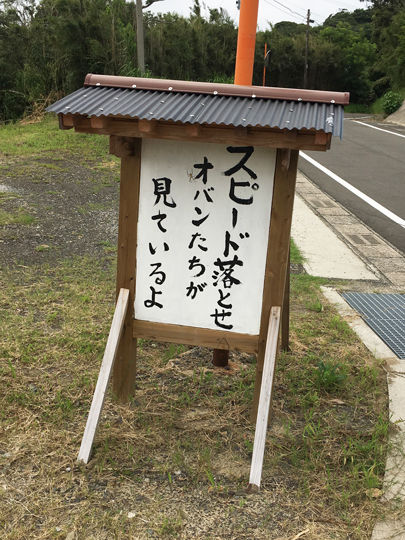 スピード落とせ
オバンたちが
見ているよ